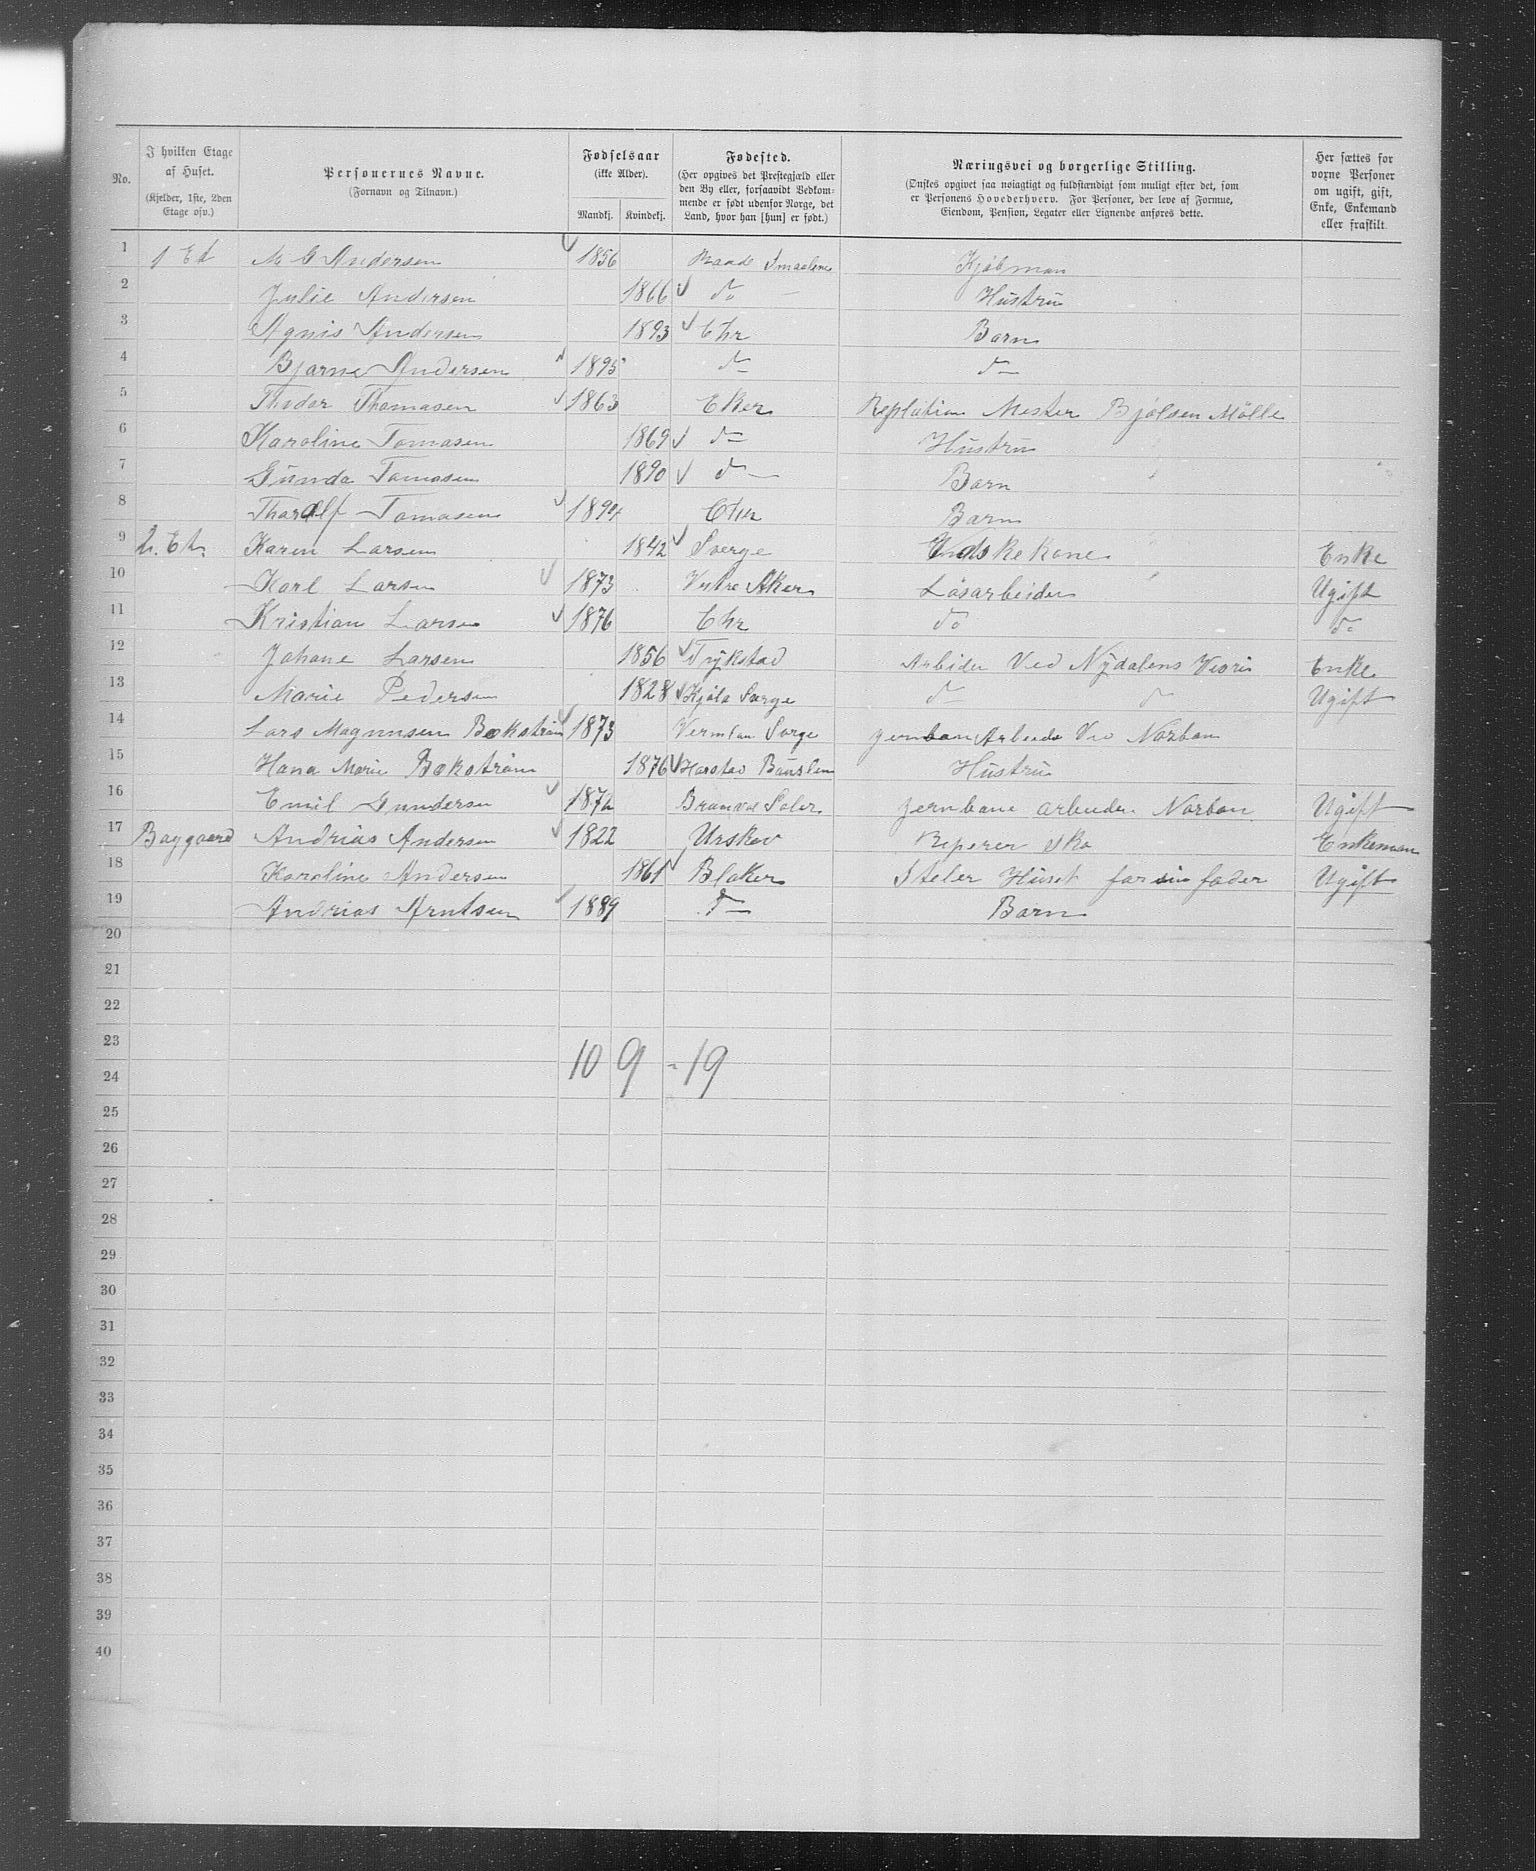 No.
I hvilken Etage af Huset.
(Kjelder, 1ste, 2den Etage osv.)
Personernes Navne.
(Fornavn og Tilnavn.)
Fødselsaar
(ikke Alder).
Mandkj. Kvindekj.
Fødested.
(Her opgives det Prestegjæld eller den By eller, forsaavidt Vedkommende er født udenfor Norge, det Land, hvor han [hun] er født.)
Næringsvei og borgerlige Stilling.
(Ønskes opgivet saa nøiagtigt og fuldstændigt som muligt efter det, som er Personens Hovederhverv. For Personer, der leve af Formue, Eiendom, Pension, Legater eller Lignende anføres dette.
Her sættes for voxne Personer om ugift, gift, Enke, Enkemand eller fraskilt.
1 1 Et M G Andersen 1856 Raade Smaalene Kjøbman
2 Julie Andersen 1866 do Hustru
3 Agnis Andersen 1893 Chr Barn
4 Bjarne Andersen 1895 do do
5 Thidor Thomasen 1863 Eker Mester Bjølsen Mölle
6 Karoline Tomasen 1869 do Hustru
7 Gunda Tomasen 1890 do Barn
8 Tharalf Tomasen 1894 Chr Barn
9 2. Et. Karen Larsen 1842 Sverge Vadskekone Enke
10 Karl Larsen 1873 Vestre Aker Løsarbeider Ugift
11 Kristian Larsen 1876 Chr do do
12 Johane Larsen 1856 Trykstad Arbider Ved Nydalens Enke
13 Marie Pedersen 1828 Sverge do do Ugift
14 Lars Magnusen Bokstrøm 1873 Vermlan Sverge jernban Arbeide Ved Norban
15 Hana Marie Bokstrøm 1876 Hustru
16 Emil Gundersen 1872 jernbane arbeider Norban Ugift
17 Baggaard Andrias Andersen 1822 Urskov Reperer sko Enkeman
18 Karoline Andersen 1861 Blaker Steler Huset for sin fader Ugift
19 Andrias Arntsen 1889 do Barn
20
21
22
23
10 9 - 19
24
25
26
27
28
29
30
31
32
33
34
35
36
37
38
39
40